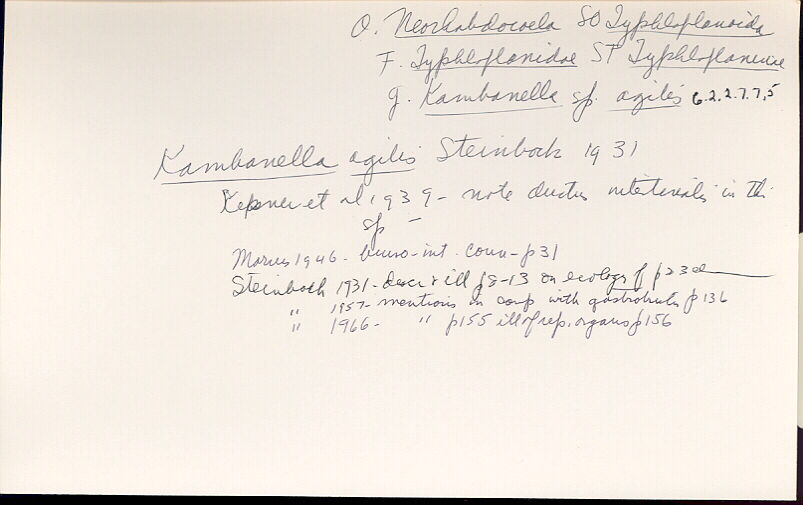 O. Neorhabdocoela SO Typhloplanoida
F. Typhloplanidae SF Typhloplaninae
g. Kambanella sp. agilis 6.2.2.7.7.5
Kambanella agilis Steinbock 1931
Kepner et al 1939 - note ductus in this
sp -
Marcus 1946 - burso-int. conn - p31
Steinbock 1931 - descr & ill p8-13 on ecology of p23
" 1957 - mentions in comp with gastrotricha p136
" 1966 - " p155 ill of rep. organs p156